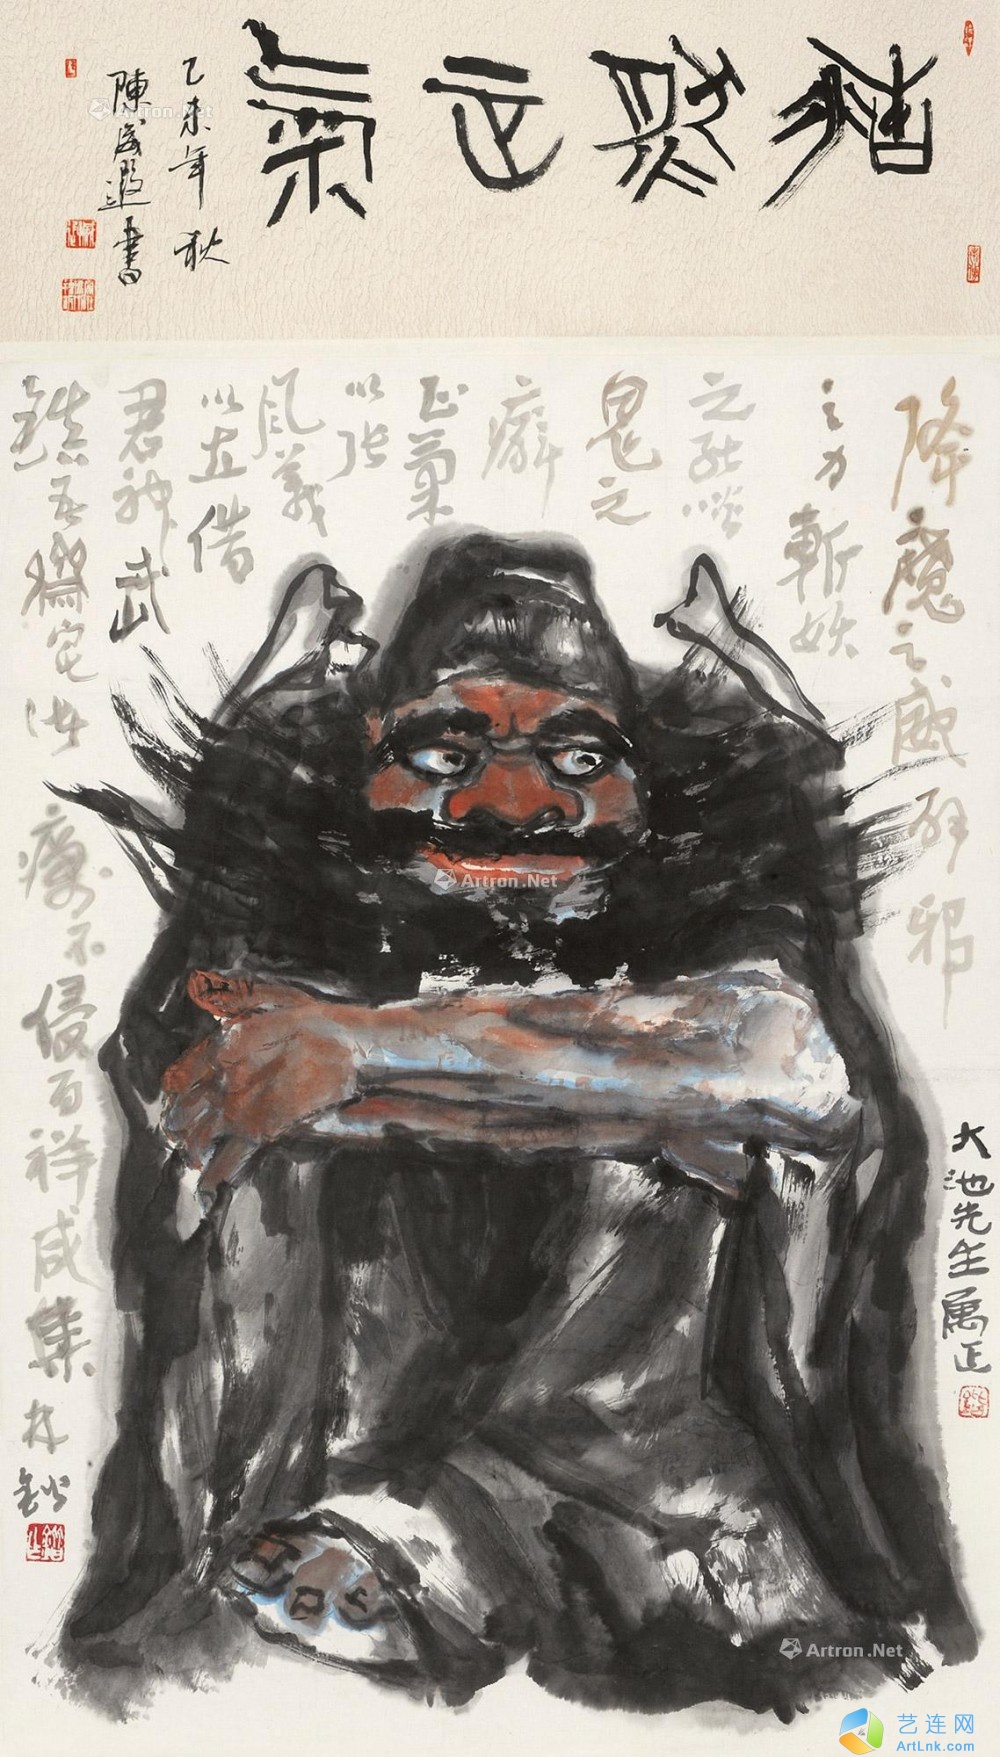 正氣
乙未年秋
陳書
降魔之威邪
之力斬妖
之能啖
鬼之
癖
正氣
以張
風義
以立借
君神武
鎮吾宅
不侵百祥咸集
林鍇
大池先生属正
Artron.Net
Artron.Net
Artron.Net
艺连网
ArtLnk.com